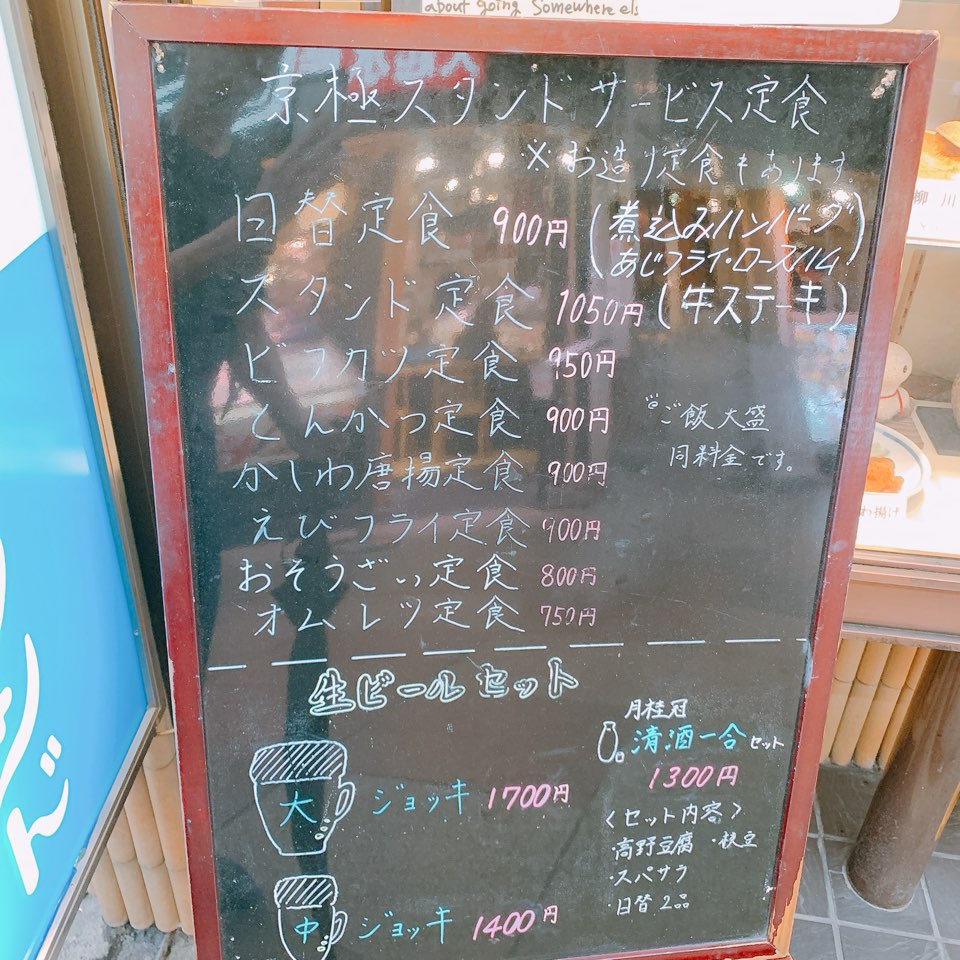 about going Somewhere els
京極スタンド サービス定食
※お造り定食もあります。
日替定食 900円 (煮込みハンバーグ
あじフライ・ロースハム)
スタンド定食 1050円 (牛ステーキ)
ビフカツ定食 950円
とんかつ定食 900円
ご飯大盛
同料金です。
かしわ唐揚定食 900円
えびフライ定食 900円
おそうざい定食 800円
オムレツ定食 750円
生ビールセット
大 ジョッキ 1700円
中 ジョッキ 1400円
月桂冠
清酒一合セット
1300円
<セット内容>
・高野豆腐 ・枝豆
・スパサラ
・日替2品
柳川
わ揚げ
ん